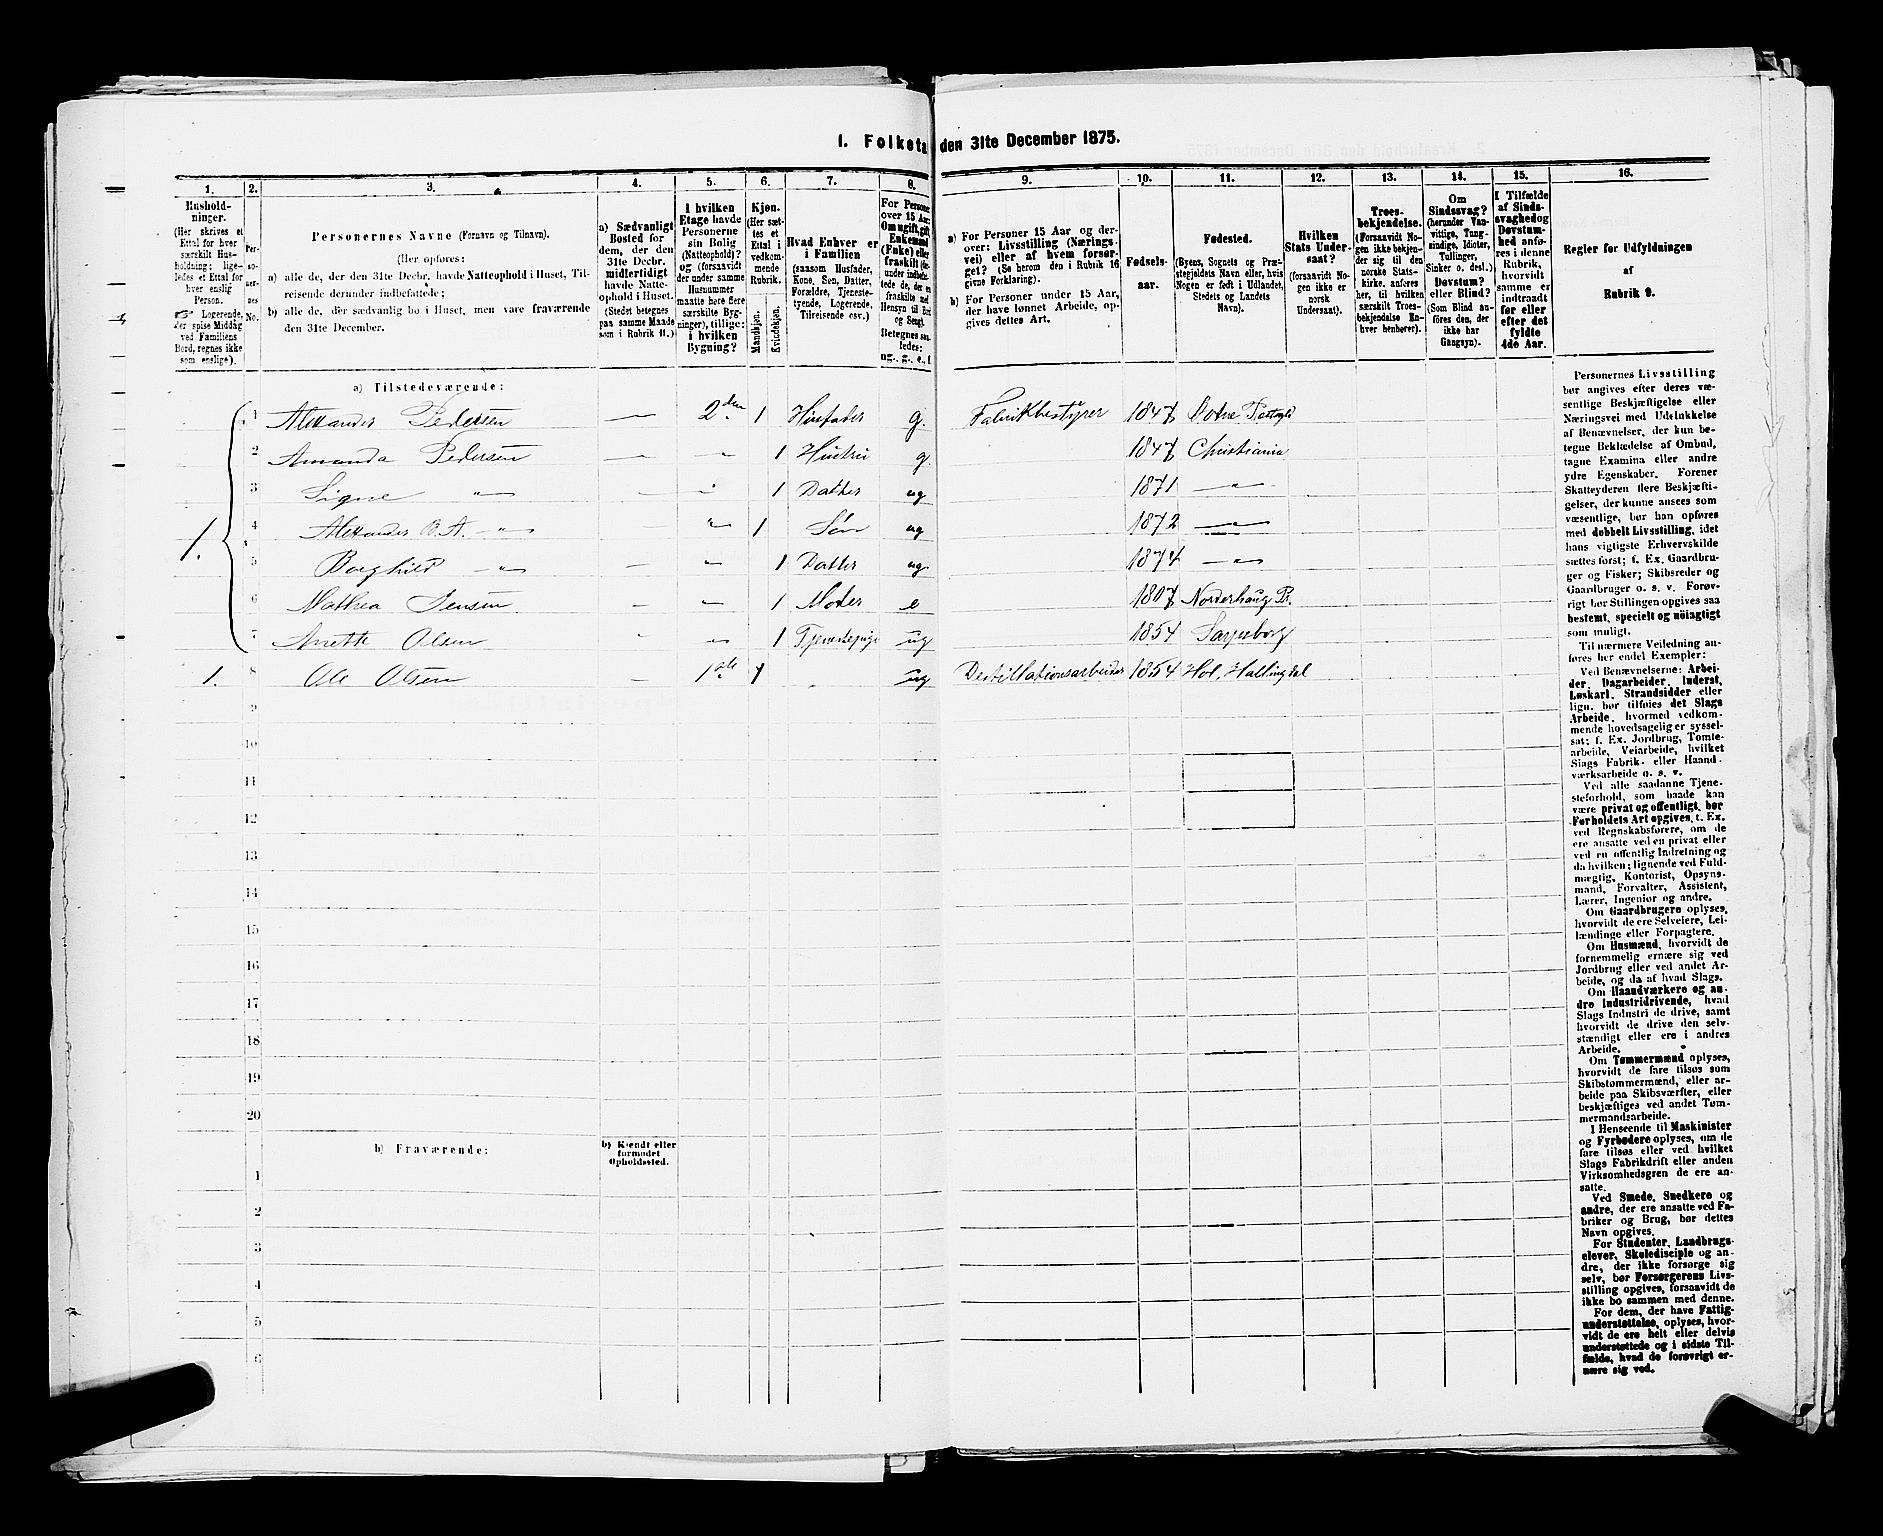 1. Folketa den 31te December 1875.
1. 2. 3. 4. 5. 6. 7. 8. 9. 10. 11. 12. 13. 14. 15. 16.
Hushold-
ninger.
(Her skrives et
Ettal for hver
særskilt Hus-
holdning; lige-
ledes et Ettal for
hver enslig
Person.
☞ Logerende,
der spise Middag
ved Familiens
Bord, regnes ikke
som enslige).
Per-
so-
ner-
nes
No.
Personernes Navne (Fornavn og Tilnavn).
(Her opføres:
a) alle de, der den 31te Decbr. havde Natteophold i Huset, Til-
reisende derunder indbefattede;
b) alle de, der sædvanlig bo i Huset, men vare fraværende
den 31te December.
a) Sædvanligt
Bosted for
dem, der den
31te Decbr.
midlertidigt
havde Natte-
ophold i Huset.
(Stedet betegnes
paa samme Maade
som i Rubrik 11.)
I hvilken
Etage havde
Personerne
sin Bolig
(Natteophold)?
og (forsaavidt
der under samme
Husnummer
maatte høre flere
særskilte Byg-
ninger), tillige:
i hvilken
Bygning?
Kjøn.
(Her sæt-
tes et
Ettal i
vedkom-
mende
Rubrik.
Mandkjøn.
Kvindekjøn.
Hvad Enhver er
i Familien
(saasom Husfader,
Kone, Søn, Datter,
Forældre, Tjeneste-
tyende, Logerende,
Tilreisende osv.)
For Persone
over 15 Aar:
Om ugift, gift,
Enkemand
(Enke) eller
fraskilt
Betegnes saa-
ledes:
ug., g., e., f.
a) For Personer 15 Aar og der-
over: Livsstilling (Nærings-
vei) eller af hvem forsør-
get? (Se herom den i Rubrik 16
givne Forklaring).
b) For Personer under 15 Aar,
der have lønnet Arbeide, op-
gives dettes Art.
Fødsels-
aar.
Fødested.
(Byens, Sognets og Præ-
stegjeldets Navn eller, hvis
Nogen er født i Udlandet,
Stedets og Landets
Navn).
Hvilken
Stats Under-
saat?
(forsaavidt No-
gen ikke er
norsk
Undersaat).
Troes-
bekjendelse.
(Forsaavidt No-
gen ikke bekjen-
der sig til den
norske Stats-
kirke, anføres
her, til hvilken
særskilt Troes-
bekjendelse En-
hver henhører).
Om
Sindssvag?
(herunder Van-
vittige, Tung-
sindige, Idioter,
Tullinger,
Sinker o. desl.)
Døvstum?
eller Blind?
(Som Blind an-
føres den, der
ikke har
Gangsyn).
I Tilfælde
af Sinds-
svaghed og
Døvstum-
hed anfø-
res i denne
Rubrik,
hvorvidt
samme er
indtraadt
før eller
efter det
fyldte
4de Aar.
Regler for Udfyldningen
af
Rubrik 9.
a) Tilstedeværende:
1. 1 Alexander Pedersen — 2den 1 Husfader g. Fabrikbestyrer 1847
2 Amanda Pedersen — „ 1 Hustru g. 1847 Christiania
3 Signe „ — „ 1 Datter ug 1871 „
4 Alexander B. A. „ — „ 1 Søn ug 1872 „
5 Borghild „ — „ 1 Datter ug 1874 „
6 Mathea Jensen — „ 1 Moder e 1807 Norderhaug P.
7 Anette Olsen „ „ 1 Tjenestepige ug 1854 Sarpsborg
1. 8 Ole Olsen — 1ste 1 „ ug Destillationsarbeider 1854 Hol, Hallingdal
9
10
11
12
13
14
15
16
17
18
19
20
b) Fraværende:
b) Kjendt eller
formodet
Opholdssted.
1
2
3
4
5
6
Personernes Livsstilling
bør angives efter deres væ-
sentlige Beskjæftigelse eller
Næringsvei med Udelukkelse
af Benævnelser, der kun be-
tegne Beklædelse af Ombud,
tagne Examina eller andre
ydre Egenskaber. Forener
Skatteyderen flere Beskjæfti-
gelser, der kunne ansees som
væsentlige, bør han opføres
med dobbelt Livsstilling, idet
hans vigtigste Erhvervskilde
sættes først; f. Ex. Gaardbru-
ger og Fisker; Skibsreder og
Gaardbruger o. s. v. Forøv-
rigt bør Stillingen opgives saa
bestemt, specielt og nöiagtigt
som muligt.
Til nærmere Veiledning an-
føres her endel Exempler:
Ved Benævnelserne: Arbei-
der, Dagarbeider, Inderst,
Løskarl, Strandsidder eller
lign. bør tilføies det Slags
Arbeide, hvormed vedkom-
mende hovedsagelig er syssel-
sat; f. Ex. Jordbrug, Tomte-
arbeide, Veiarbeide, hvilket
Slags Fabrik- eller Haand-
værksarbeide o. s. v.
Ved alle saadanne Tjene-
steforhold, som baade kan
være privat og offentligt, bør
Forholdets Art opgives, t. Ex.
ved Regnskabsførere, om de
ere ansatte ved en privat eller
ved en offentlig Indretning og
da hvilken; lignende ved Fuld-
mægtig, Kontorist, Opsyns-
mand, Forvalter, Assistent,
Lærer, Ingeniør og andre.
Om Gaardbrugere oplyses,
hvorvidt de ere Selveiere, Lei-
lændinge eller Forpagtere.
Om Husmænd, hvorvidt de
fornemmelig ernære sig ved
Jordbrug eller ved andet Ar-
beide, og da af hvad Slags.
Om Haandværkere og an-
dre Industridrivende, hvad
Slags Industri de drive, samt
hvorvidt de drive den selv-
stændigt eller ere i andres
Arbeide.
Om Tømmermænd oplyses,
hvorvidt de fare tilsøs som
Skibstømmermænd, eller ar-
beide paa Skibsværfter, eller
beskjæftiges ved andet Tøm-
mermandsarbeide.
I Henseende til Maskinister
og Fyrbødere oplyses, om de
fare tilsøs eller ved hvilket
Slags Fabrikdrift eller anden
Virksomhedsgren de ere an-
satte.
Ved Smede, Snedkere og
andre, der ere ansatte ved Fa-
briker og Brug, bør dettes
Navn opgives.
For Studenter, Landbrugs-
elever, Skoledisciple og an-
dre, der ikke forsørge sig
selv, bør Forsørgerens Livs-
stilling opgives, forsaavidt de
ikke bo sammen med denne.
For dem, der have Fattig-
understøttelse, oplyses, hvor-
vidt de ere helt eller delvis
understøttede og i sidste Til-
fælde, hvad de forøvrigt er-
nære sig ved.